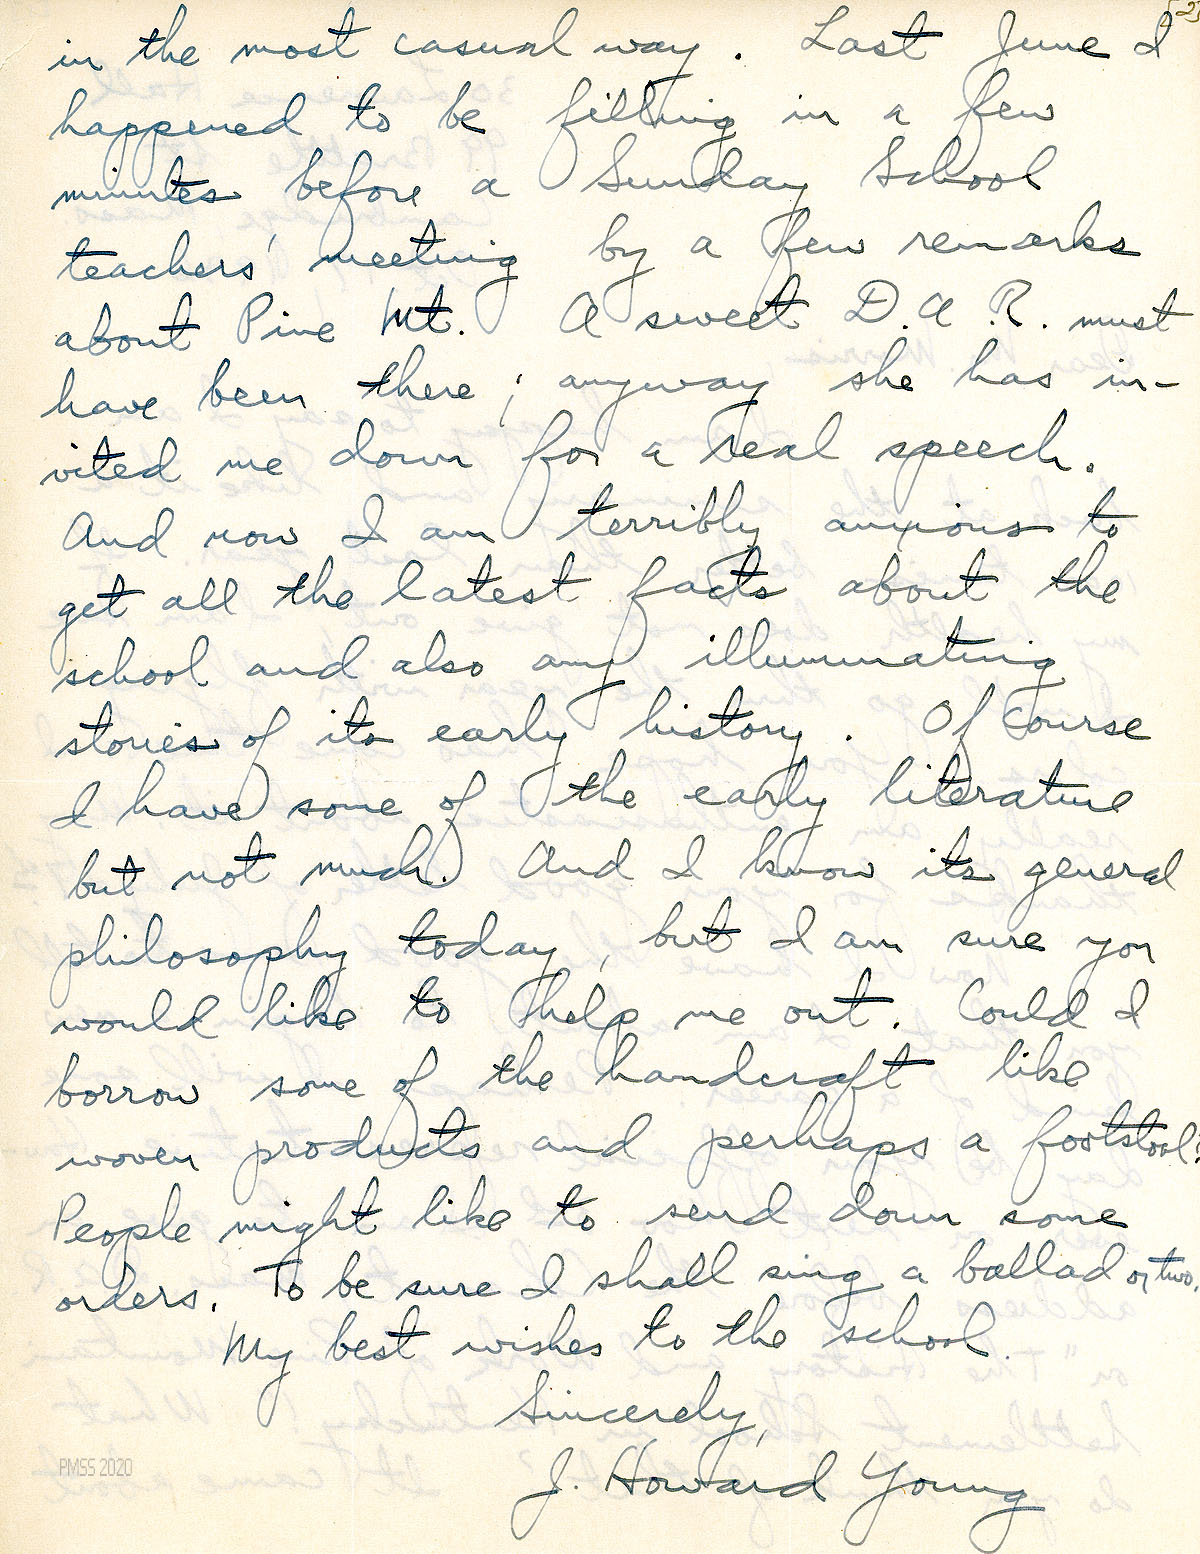 [2]
in the most casual way. Last June I
happened to be filling in a few
minutes before a Sunday School
teachers' meeting by a few remarks
about Pine Mt. A sweet D.A.R. must
have been there; anyway she has in-
vited me down for a real speech.
And now I am terribly anxious to
get all the latest facts about the
school and also any illuminating
stories of its early history. Of course
I have some of the early literature
but not much. And I know its general
philosophy today, but I am sure you
would like to help me out. Could I
borrow some of the handcraft like
woven products and perhaps a footstool?
People might like to send down some
orders. To be sure I shall sing a ballad or two.
My best wishes to the school.
Sincerely,
J. Howard Young
PMSS 2020